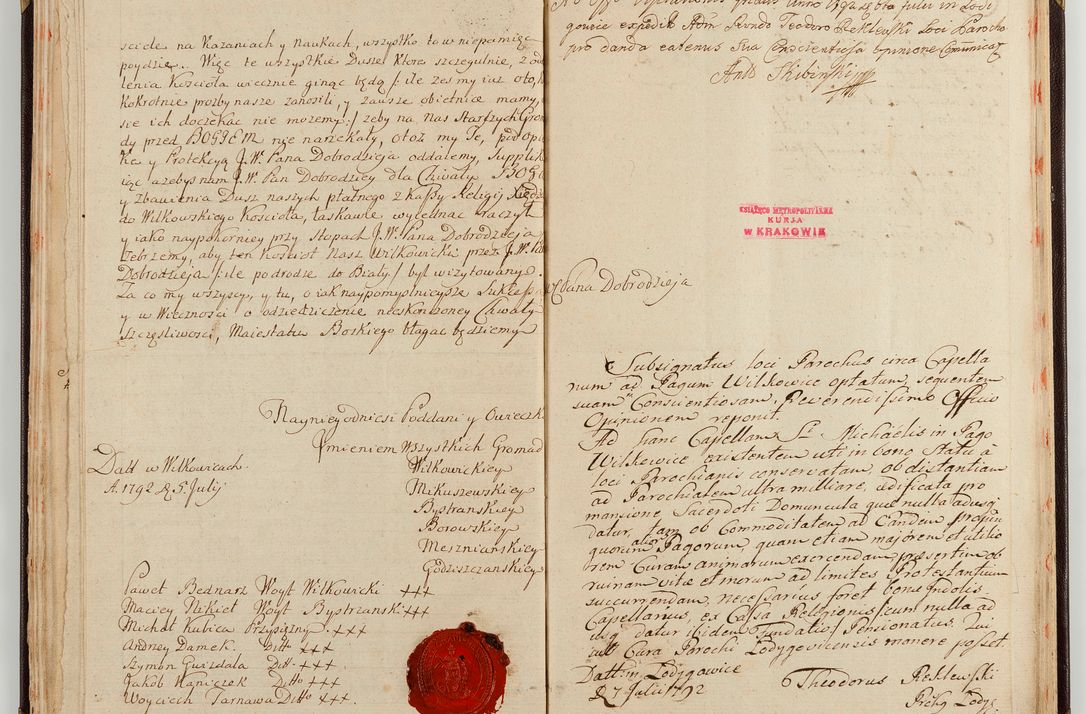 scide na Kazaniach y Naukach, wszystko to w niepamięc
poydzie. Więc te wszystkie Dusze ktore szczegulnie, z od
lenia Kościoła wiecznie ginąc będą /: ile żesmy iuż oto, k
kokrotnie prozby nasze zanosili, y zausze obietnice mamy,
się ich doczekac nie możemy :/ zeby na Nas Starszych Gro
dy przed BOGIEM nie narzekały, otoż my Te, pod Opi
kę y Protekcyą J.W. Pana Dobrodzieja oddaiemy, Supplik
iąc azebys nam J.W. Pan Dobrodziey dla Chwały BOSK
y zbawienia Dusz naszych płatnego z Kassy Religij Xiędz
do Wilkowskiego Kościoła, łaskawie wyiednac raczył
y iako naypokorniey przy Stopach J.W. Pana Dobrodzieja
żebrzemy, aby ten Kościoł Nasz Wilkowicki przez J.W. Pa
Dobrodzieja /: ile po drodze do Biały :/ był wizytowany.
Za co my wszyscy, y tu, o iak naypomyslnieysze Sukcessa
y w Wieczności o odziedziczenie nieskończoney Chwały
Szczęśliwosci, Maiestatu Boskiego błagac będziemy
Nayniegodnieysi Poddani y Owieczk
Imieniem Wszystkich Gromad
Datt w Wilkowicach
Wilkowickiey
A. 1792 d. 5. Julij
Mikuszewskiey
Bystranskiey
Borowskiey
Meszniańskiey
Godziszczanskiey
Paweł Bednarz Woyt Wilkowicki +++
Maciey Nikiel Woyt Bystrzanski +++
Michał Kubica Przysiężny +++
Andrzey Damek. Ditt +++
Szymon Gwizdala Ditt +++
Jakob Kaniczek Ditto +++
Woyciech Tarnawa Ditto ++
govice expedit Adm Rndo Teodoro Reklewski Loci Parocho
pro danda eatenus Sua Conscientiosa opinione Comunicat
Ant Skibinski
KSIĄŻĘCO METROPOLITALNA
KURJA
W KRAKOWIE
W Pana Dobrodzieja
Subsignatus loci Parochus circa Capella
num ad Pagum Wilkowice optatum, sequentem
suam Conscientiosam, Reverendissimo Officio
Opinionem reponit.
Ad hanc Capellam S. Michaelis in Pago
Wilkowice existentem uti in bono Statu à
loci Parochianis conservatam, ob distantiam
ad Parochialem ultra milliare, ædificata pro
mansione Sacerdoti Domuncula quæ nulla adusq
datur, tam ob Commoditatem ad Eandem propin
quorum alior Pagorum, quam etiam majorem et utilio
rem Curam animarum exercendam, præsertim ob
ruinam vitæ et morum ad limites Protestantium
succurrendam, necessarius foret bonæ Indolis
Capellanus, ex Cassa Religionis / cum nulla ad
usq datur ibidem Fundatio / Pensionatus. Qui
sub Cura Parochi Lodygovicensis manere posset.
Datt in Lodygowice
D. 7 Julii 1792
Theodorus Reklewski